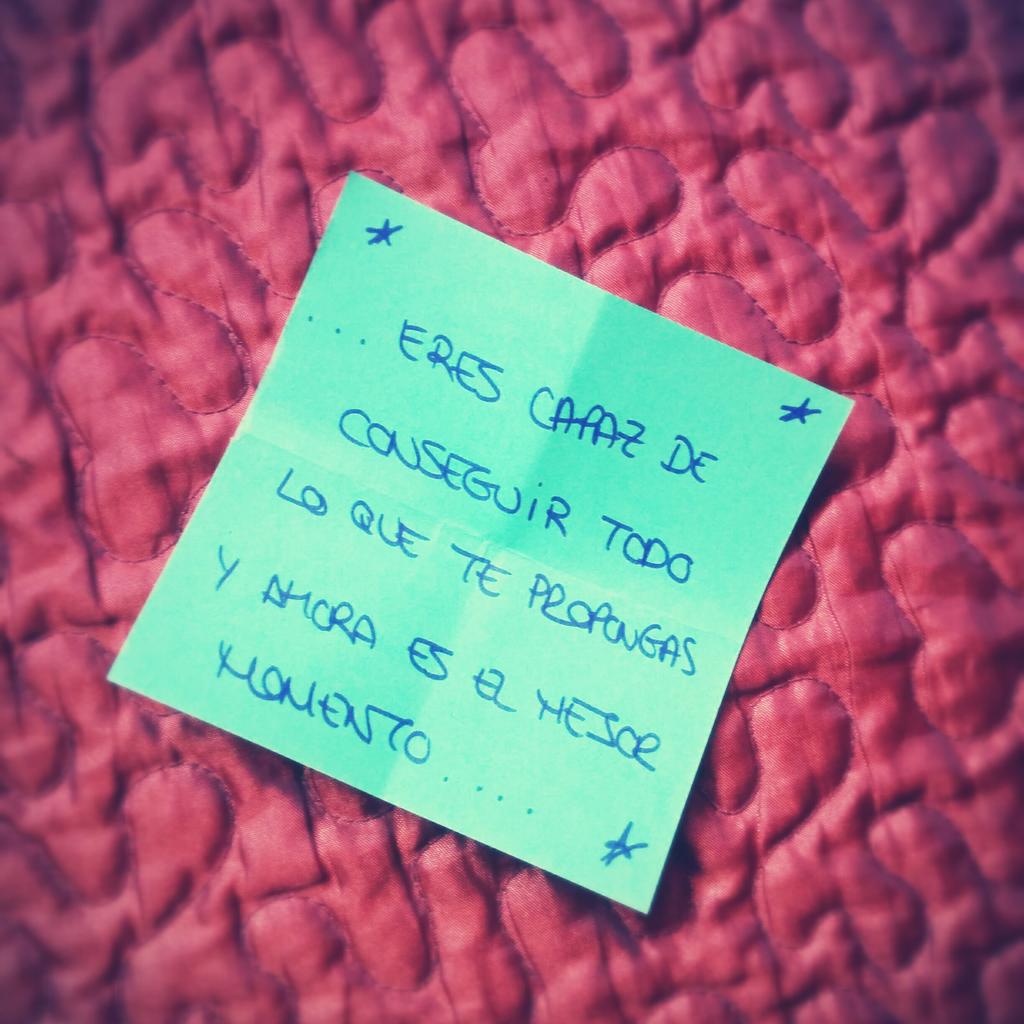 ... ERES CAPAZ DE
CONSEGUIR TODO
LO QUE TE PROPONGAS
Y AHORA ES EL MEJOR
MOMENTO ....